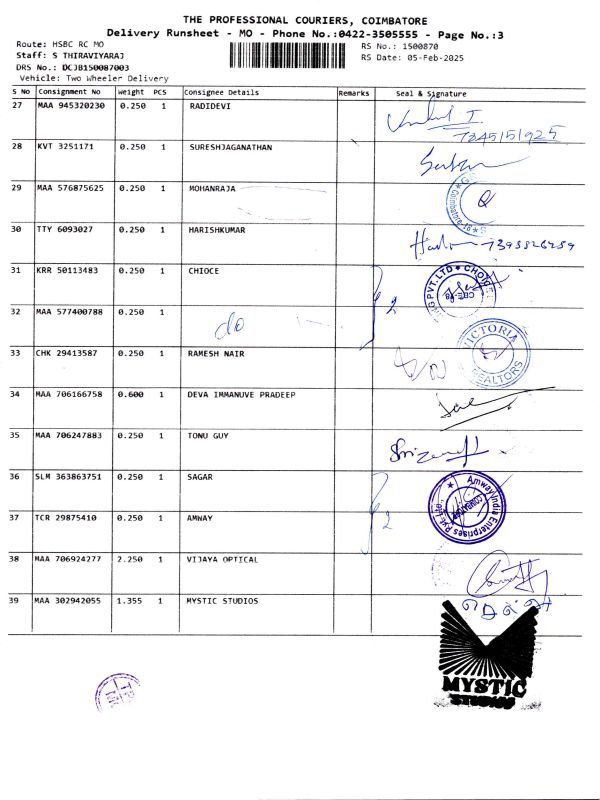 THE PROFESSIONAL COURIERS, COIMBATORE
Delivery Runsheet - MO - Phone No.:0422-3505555 - Page No.:3
Route: HSBC RC MO RS No.: 1500870
Staff: S THIRAVIYARAJ RS Date: 05-Feb-2025
DRS No.: DCJB150087003
Vehicle: Two Wheeler Delivery
S No Consignment No Weight PCS Consignee Details Remarks Seal & Signature
27 MAA 945320230 0.250 1 RADIDEVI
28 KVT 3251171 0.250 1 SURESHJAGANATHAN
29 MAA 576875625 0.250 1 MOHANRAJA
30 TTY 6093027 0.250 1 HARISHKUMAR
31 KRR 50113483 0.250 1 CHIOCE
32 MAA 577400788 0.250 1
do
2
33 CHK 29413587 0.250 1 RAMESH NAIR
VICTORIA
REALTORS
34 MAA 706166758 0.600 1 DEVA IMMANUVE PRADEEP
35 MAA 706247883 0.250 1 TONU GUY
36 SLM 363863751 0.250 1 SAGAR
37 TCR 29875410 0.250 1 AMWAY
2
Amway India Enterprises Pvt. Ltd.
38 MAA 706924277 2.250 1 VIJAYA OPTICAL
39 MAA 302942055 1.355 1 MYSTIC STUDIOS
MYSTIC
STUDIOS